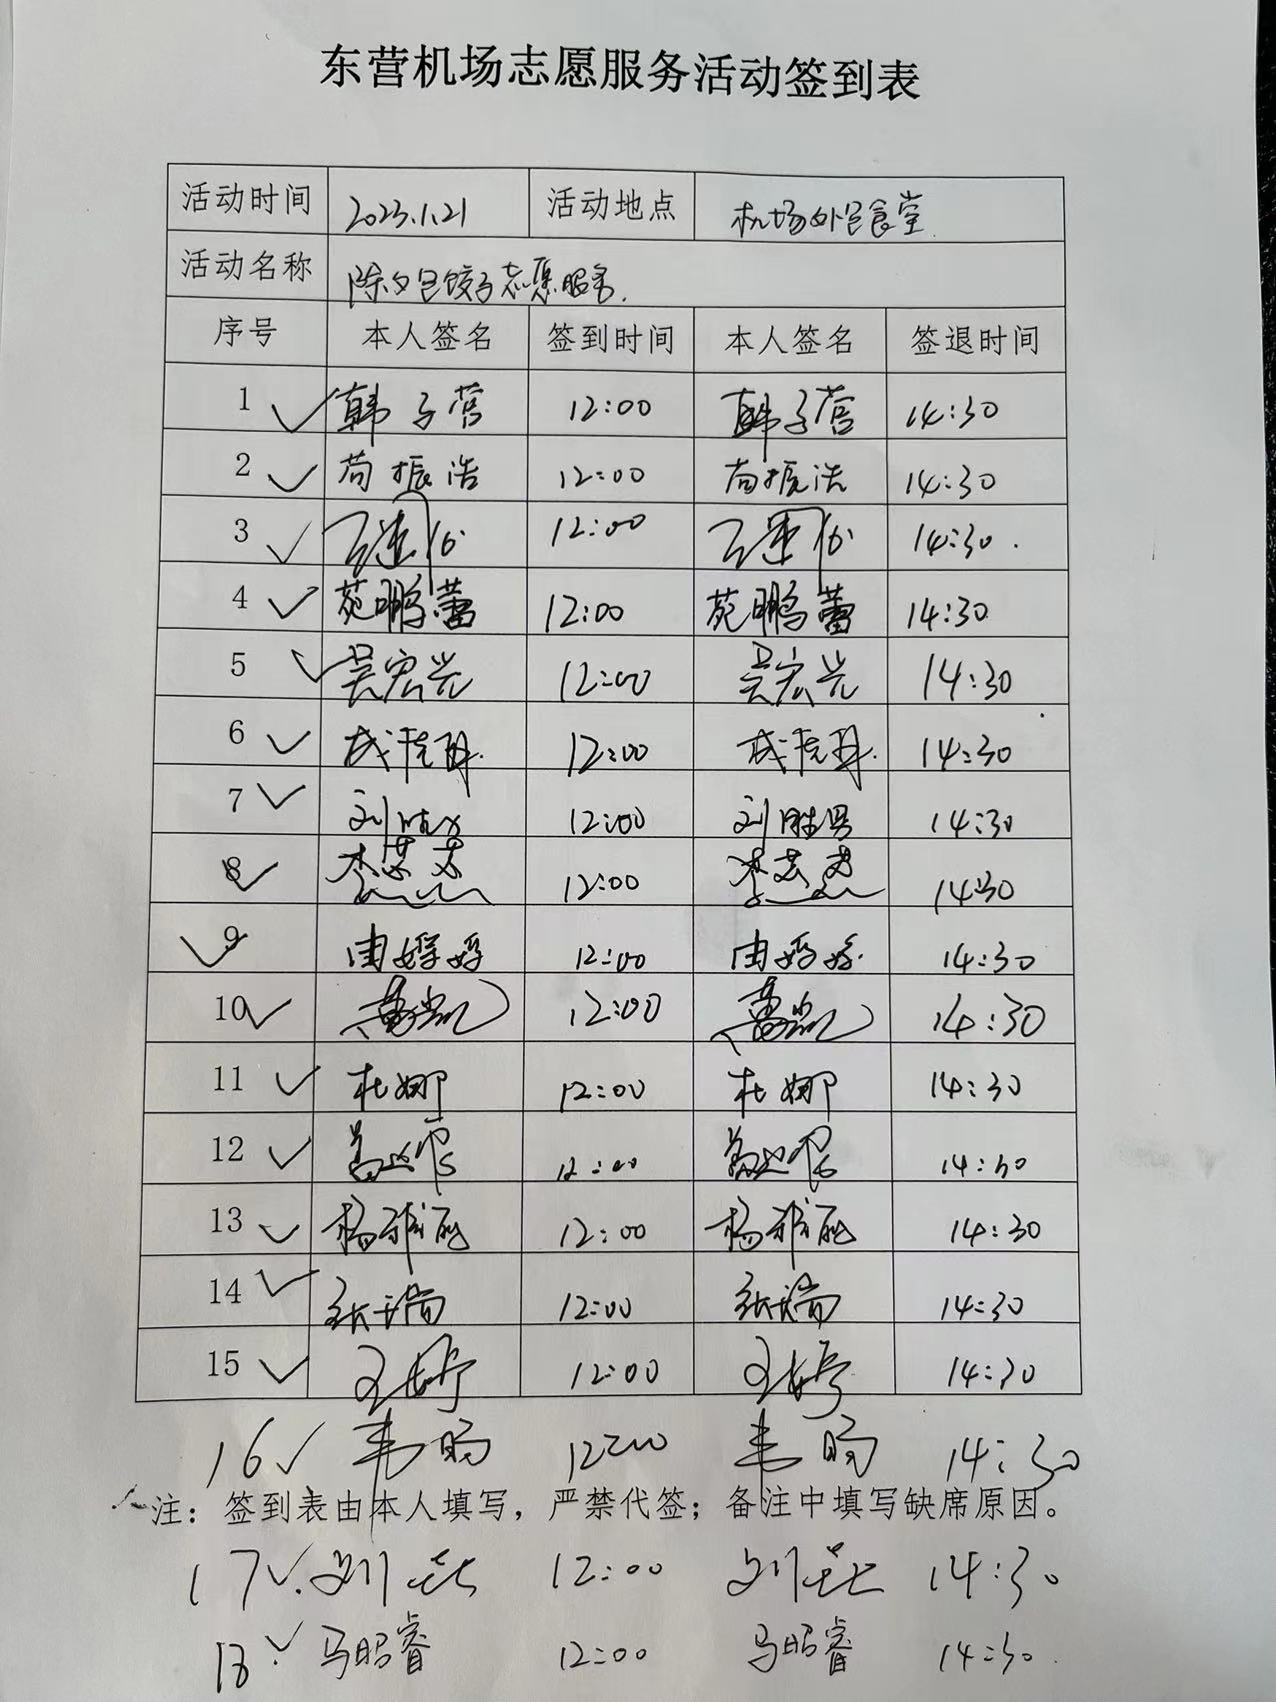 东营机场志愿服务活动签到表
活动时间 2023.1.21 活动地点 机场外宫食堂
活动名称 除夕包饺子志愿服务.
序号 本人签名 签到时间 本人签名 签退时间
1 韩子营 12:00 韩子营 14:30
2 苟振浩 12:00 苟振浩 14:30
3 12:00 14:30.
4 苑鹏蕾 12:00 苑鹏蕾 14:30
5 吴宏兴 12:00 吴宏兴 14:30
6 12:00 14:30
7 刘 12:00 刘胜男 14:30
8 李 12:00 李 14:30
9 由婷婷 12:00 由婷婷 14:30
10 12:00 14:30
11 杜娜 12:00 杜娜 14:30
12 12:00 14:30
13 杨雅丽 12:00 杨雅丽 14:30
14 张瑞 12:00 张瑞 14:30
15 王婷 12:00 王婷 14:30
16 韦旸 12:00 韦旸 14:30
注：签到表由本人填写，严禁代签；备注中填写缺席原因。
17 刘 12:00 刘 14:30
18 马昭睿 12:00 马昭睿 14:30.